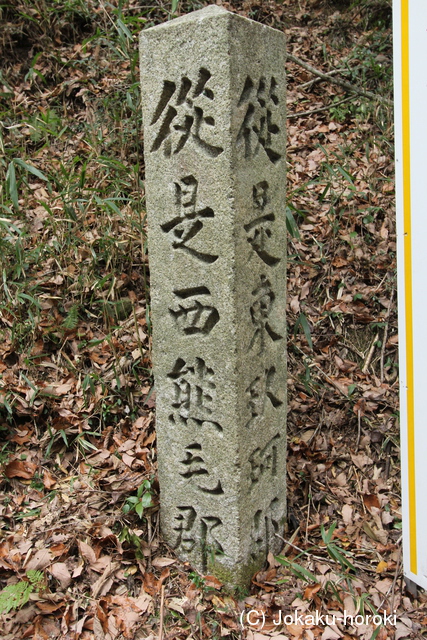 從是西熊毛郡
從是東玖珂郡
(C) Jokaku-horoki